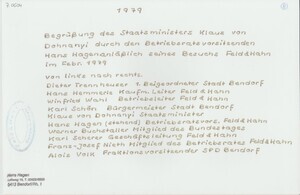 1979
Begrüßung des Staatsministers Klaus von
Dohnanyi durch den Betriebsratsvorsitzenden
Hans Hagen anläßlich seines Besuchs Feld & Hahn
im Febr. 1979
von links nach rechts:
Dieter Trennheuser 1. Beigeordneter Stadt Bendorf
Hans Hommerle Kaufm. Leiter Feld & Hahn
Winfried Wahl Betriebsleiter Feld & Hahn
Karl Schön Bürgermeister Stadt Bendorf
Klaus von Dohnanyi Staatsminister
Hans Hagen (stehend) Betriebsratsvors. Feld & Hahn
Werner Buchstaller Mitglied des Bundestages
Karl Scherer Geschäftsleitung Feld & Hahn
Franz-Josef Hieth Mitglied des Betriebsrates Feld & Hahn
Alois Volk Fraktionsvorsitzender SPD Bendorf
Hans Hagen
5413 Bendorf/Rh. 1